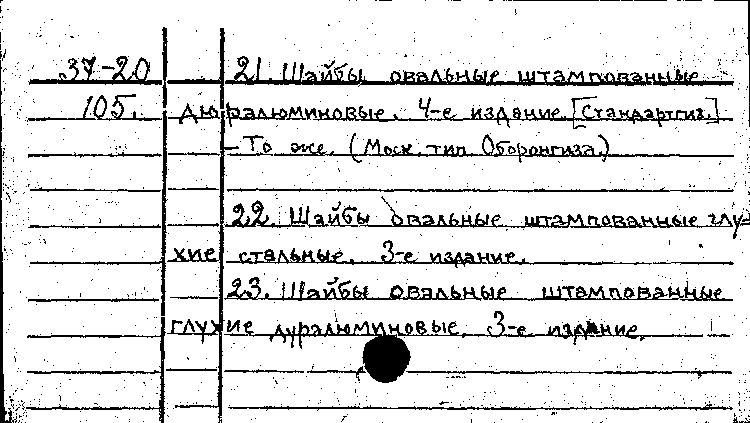 37-20 21. Шайбы овальные штампованные
105. дюралюминовые. 4-е издание. [Стандартгиз.]
- То же. (Моск. тип. Оборонгиза.)
22. Шайбы овальные штампованные глу-
хие стальные. 3-е издание.
23. Шайбы овальные штампованные
глухие дуралюминовые. 3-е издание.